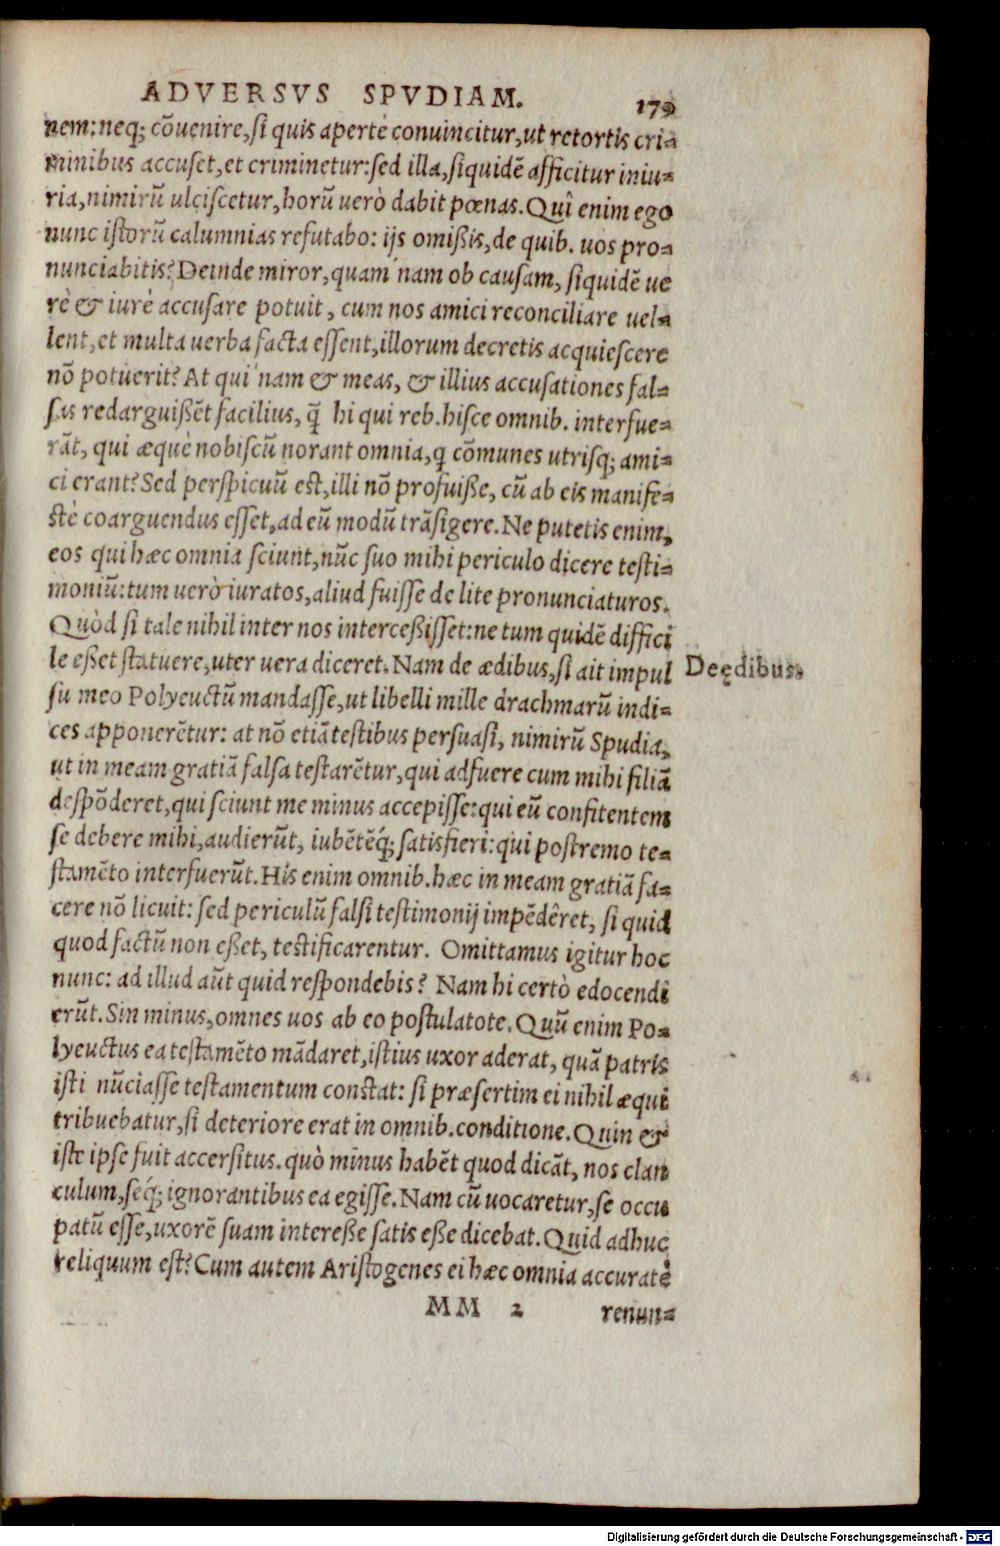 ADVERSVS SPVDIAM. 179
nem: neq; cõuenire, si quis apertè conuincitur, ut retortis cri-
minibus accuset, et criminetur: sed illa, siquidẽ afficitur iniu-
ria, nimirũ ulciscetur, horũ uerò dabit pœnas. Quî enim ego
nunc istorũ calumnias refutabo: ijs omißis, de quib. uos pro-
nunciabitis? Deinde miror, quam nam ob causam, siquidẽ ue
rè & iurè accusare potuit, cum nos amici reconciliare uel-
lent, et multa uerba facta essent, illorum decretis acquiescere
nõ potuerit? At qui nam & meas, & illius accusationes fal-
sas redarguißẽt facilius, q̃ hi qui reb. hisce omnib. interfue-
rãt, qui æquè nobiscũ norant omnia, q cõmunes utrisq; ami-
ci erant? Sed perspicuũ est, illi nõ profuiße, cũ ab eis manife-
stè coarguendus esset, ad eũ modũ trãsigere. Ne putetis enim,
eos qui hæc omnia sciunt, nũc suo mihi periculo dicere testi-
moniũ: tum uerò iuratos, aliud fuisse de lite pronunciaturos.
Quòd si tale nihil inter nos interceßisset: ne tum quidẽ diffici
le eßet statuere, uter uera diceret. Nam de ædibus, si ait impul
su meo Polyeuctũ mandasse, ut libelli mille drachmarũ indi-
ces apponerẽtur: at nõ etiã testibus persuasi, nimirũ Spudia,
ut in meam gratiã falsa testarẽtur, qui adfuere cum mihi filiã
despõderet, qui sciunt me minus accepisse: qui eũ confitentem
se debere mihi, audierũt, iubẽtẽq́; satisfieri: qui postremo te-
stamẽto interfuerũt. His enim omnib. hæc in meam gratiã fa-
cere nõ licuit: sed periculũ falsi testimonij impẽdêret, si quid
quod factũ non eßet, testificarentur. Omittamus igitur hoc
nunc: ad illud aũt quid respondebis? Nam hi certò edocendi
erũt. Sin minus, omnes uos ab eo postulatote. Quũ enim Po-
lyeuctus ea testamẽto mãdaret, istius uxor aderat, quã patris
isti nũciasse testamentum constat: si præsertim ei nihil æqui
tribuebatur, si deteriore erat in omnib. conditione. Quin &
iste ipse fuit accersitus. quò minus habẽt quod dicãt, nos clan
culum, seq́; ignorantibus ea egisse. Nam cũ uocaretur, se occu
patũ esse, uxorẽ suam intereße satis eße dicebat. Quid adhuc
reliquum est? Cum autem Aristogenes ei hæc omnia accuratè
MM 2 renun-
De ędibus.
Digitalisierung gefördert durch die Deutsche Forschungsgemeinschaft - DFG